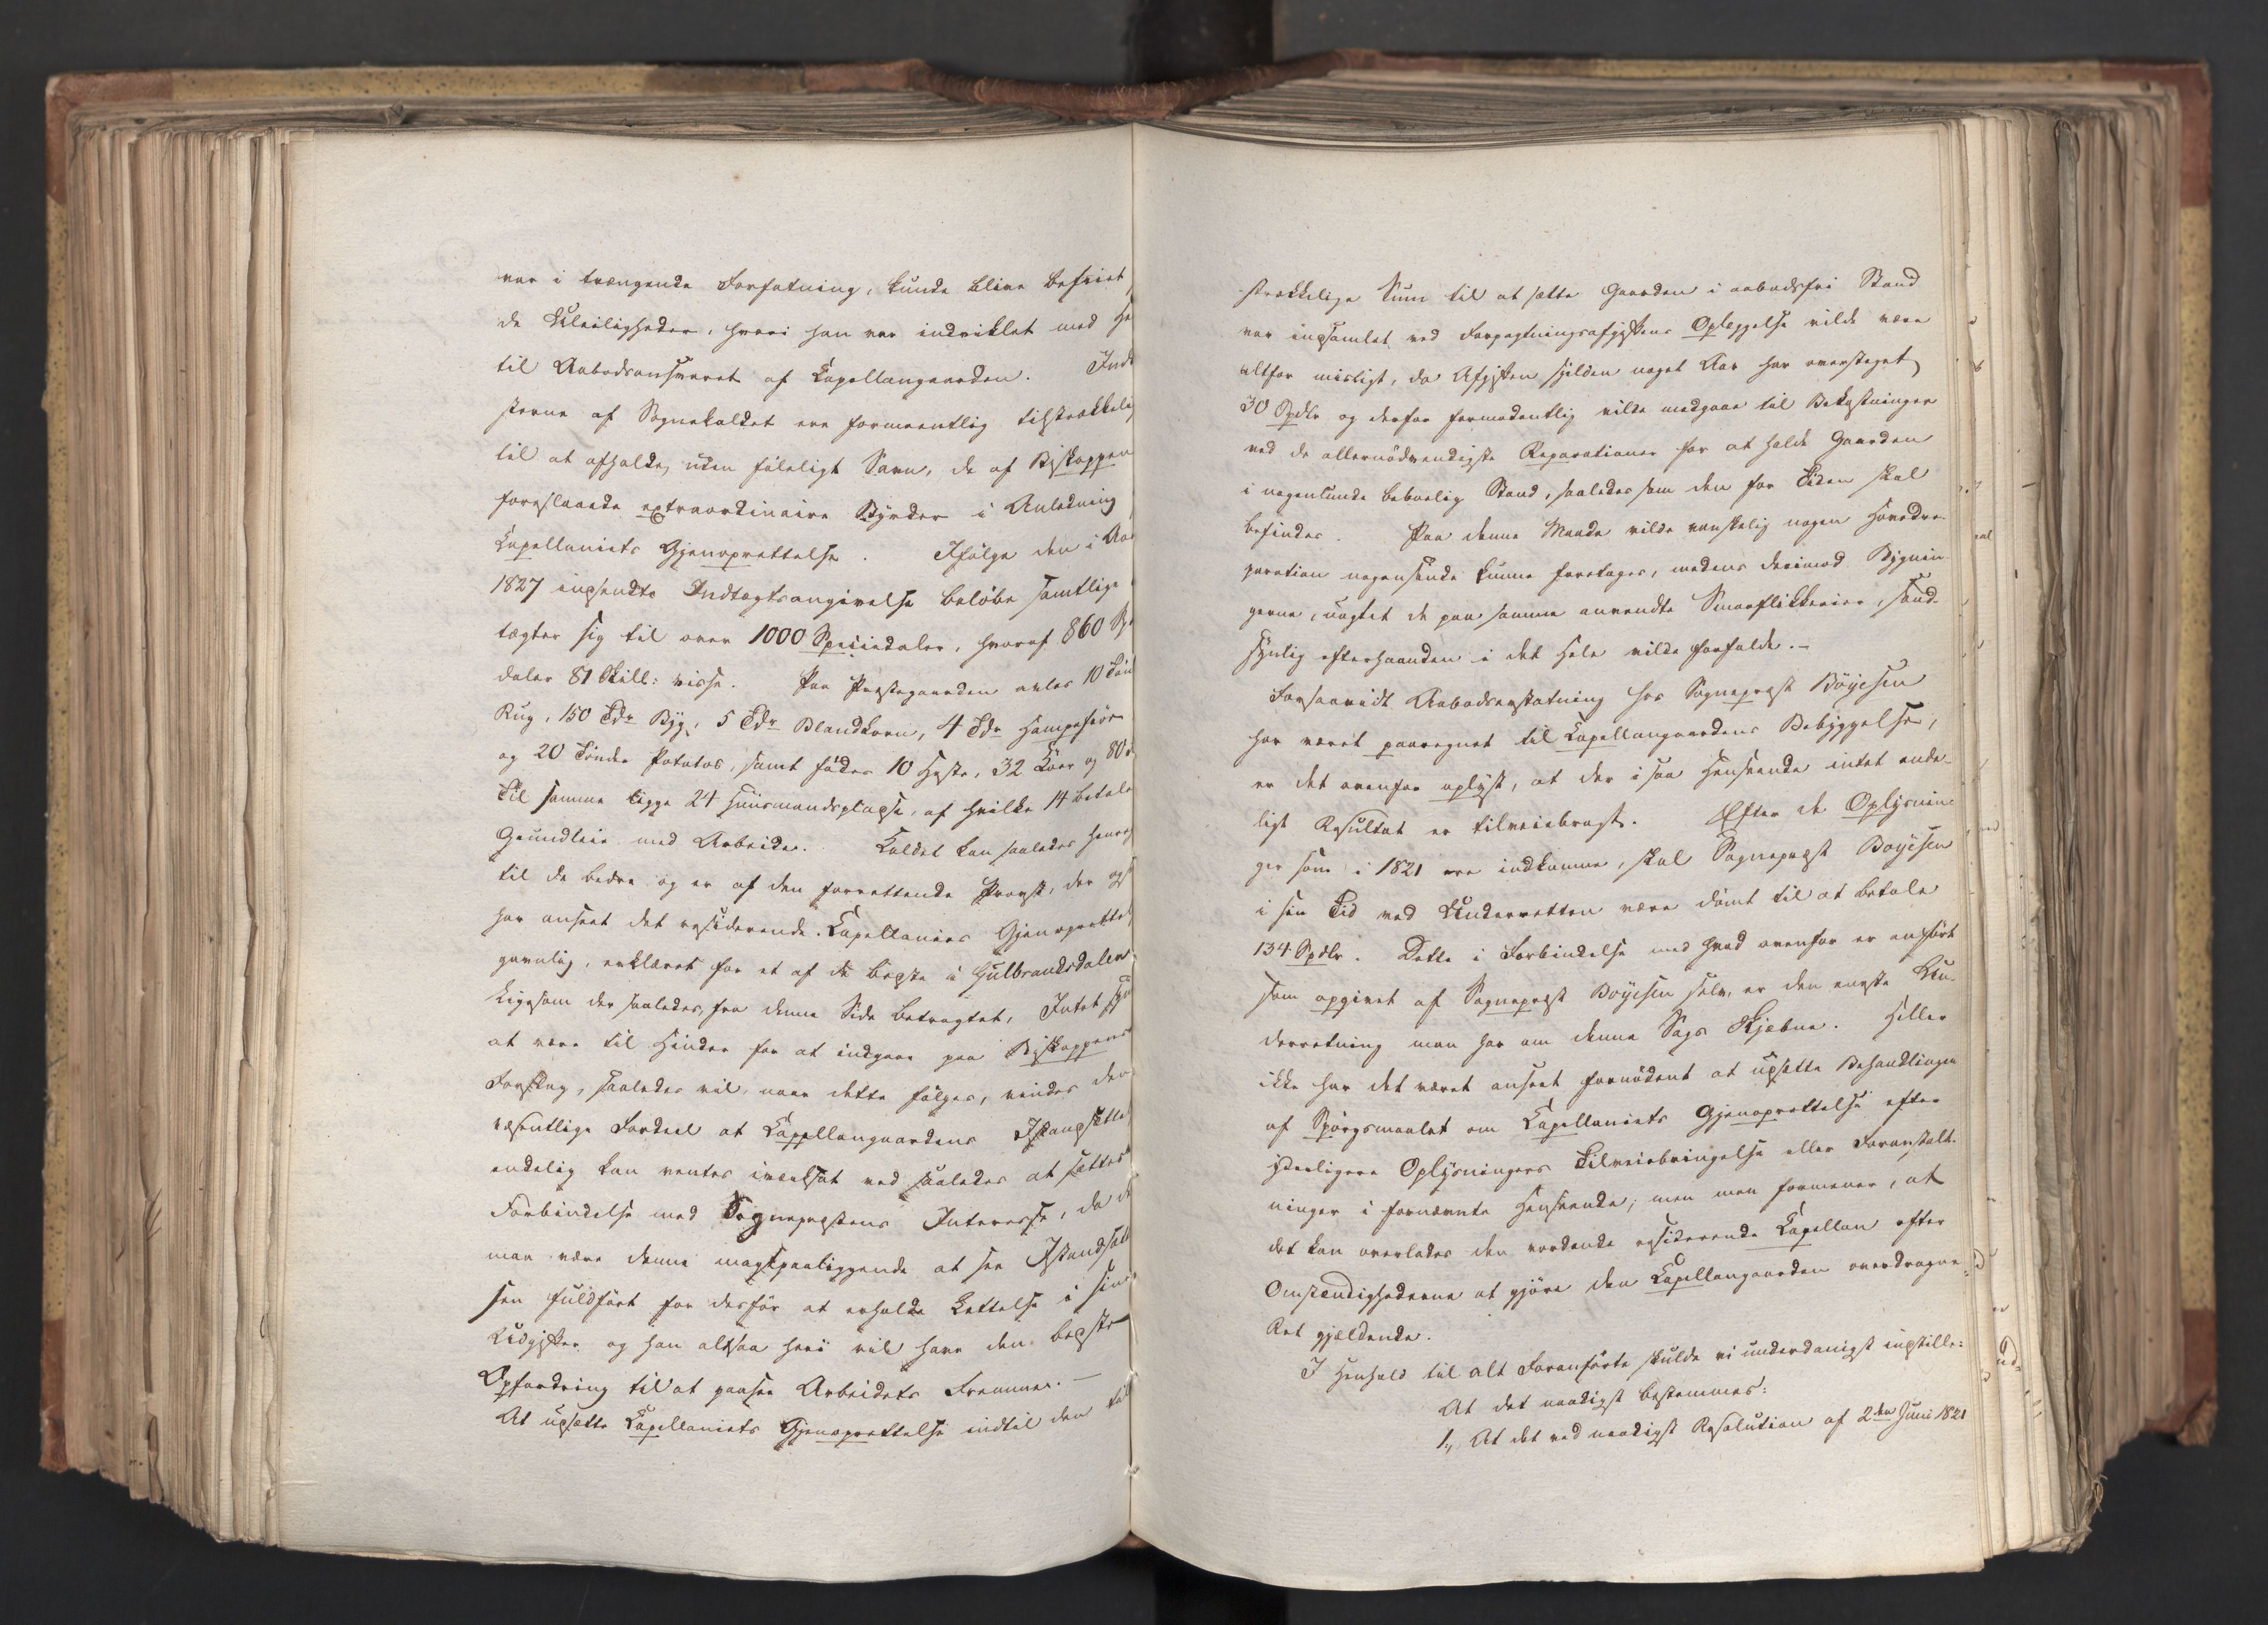 var i trængende Forfatning, kunde blive befriet
de Uleiligheder, hvori han var indviklet med He
til Aabodsansvaret af Capellangaarden. Indt
terne af Sognekaldet ere formeentlig tilstrækkeli
til at afholde, uden føleligt Savn, de af Biskoppen
foreslaaede extraordinaire Byrder i Anledning
Capellaniets Gjenoprettelse. Ifølge den i Aar
1827 indsendte Indtægtsangivelse beløbe samtlige
tægter sig til over 1000 Speciedaler, hvoraf 860 Sp
daler 81 Skill: visse. Paa Præstegaarden avles 10 Tøn
Rug, 150 Tdr Byg, 5 Tdr Blandkorn, 4 Tdr Hampefrøe
og 20 Tønder Potatos, samt fødes 10 Heste, 32 Køer og 80
Til samme ligge 24 Huusmandspladse, af hvilke 14 betale
Grundleie med Arbeide. Kaldet kan saaledes henreg
til de bedre og er af den forrettende Provst, der og
har anseet det residerende Capellanies Gjenoprettel
gavnlig, erklæret for et af de bedste i Gulbrandsdalen
Ligesom der saaledes, fra denne Side betragtet, Intet syn
at være til Hinder for at indgaae paa Biskoppens
Forslag, saaledes vil, naar dette følges, vindes den
væsentlige Fordeel at Cappellangaardens Istandsætte
endelig kan ventes iværksat ved saaledes at sættes
Forbindelse med Sognepræstens Interesse, da de
maa være denne magtpaaliggende at see Istandsætt
sen fuldført for derfør at erholde Lettelse i sin
Udgifter og han altsaa heri vil have den bedste
Opfordring til at paasee Arbeidets Fremme. —
At udsætte Capellaniets Gjenoprettelse indtil den til
strækkelige Sum til at sætte Gaarden i aabodsfri Stand
var indsamlet ved Forpagtningsafgiftens Oplæggelse vilde være
altfor misligt, da Afgiften sjelden noget Aar har oversteget
30 Spdlr og derfor formodentlig vilde medgaae til Bekostninger
ved de allernødvendigste Reparationer for at holde Gaarden
i nogenlunde beboelig Stand, saaledes som den for Tiden skal
befindes. Paa denne Maade vilde vanskelig nogen Hovedre-
paration nogensinde kunne foretages, medens derimod Bygnin-
gerne, uagtet de paa samme anvendte Smaaflikkerier, sand-
synlig efterhaanden i det Hele vilde forfalde. —
Forsaavidt Aabodserstatning hos Sognepræst Bøyesen
har været paaregnet til Capellangaardens Bebyggelse,
er det ovenfor oplyst, at der i saa Henseende intet ende-
ligt Resultat er tilveiebragt. Efter de Oplysnin-
ger som i 1821 ere indkomne, skal Sognepræst Boyesen
i sin Tid ved Underretten være dømt til at betale
134 Spdlr. Dette i Forbindelse med hvad ovenfor er anført
som opgivet af Sognepræst Boyesen selv, er den eneste Un-
derretning man har om denne Sags Skjæbne. Heller
ikke har det været anseet fornødent at udsætte Behandlingen
af Spørgsmaalet om Capellaniets Gjenoprettelse efter
yderligere Oplysningers Tilveiebringelse eller Foranstalt-
ninger i fornævnte Henseende, men man formener, at
det kan overlades den vordende residerende Capellan efter
Omstændighederne at gjøre den Capellangaarden overdragne
Ret gjældende.
I Henhold til alt Foranførte skulde vi underdanigst indstille:
At det naadigst bestemmes:
1., At det ved naadigst Resolution af 2den Juni 1821